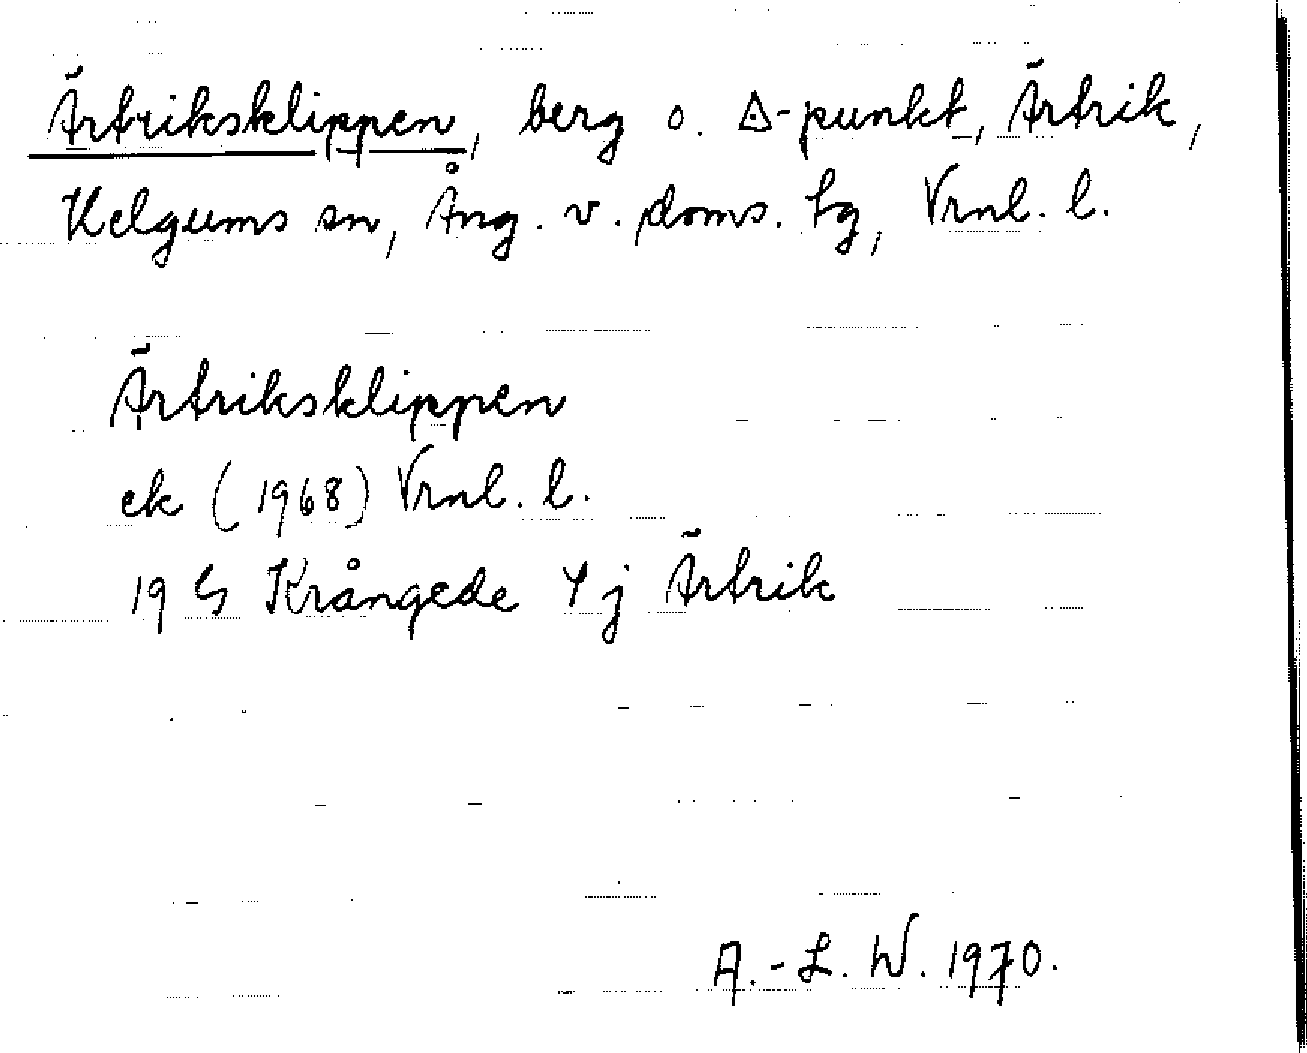 Ärtriksklippen, berg o. ∆-punkt, Ärtrik,
Helgums sn, Ång. v. doms. tg, Vrnl. l.
Ärtriksklippen
ek (1968) Vrnl. l.
19 G Krångede 4 j Ärtrik
A.-L. W. 1970.